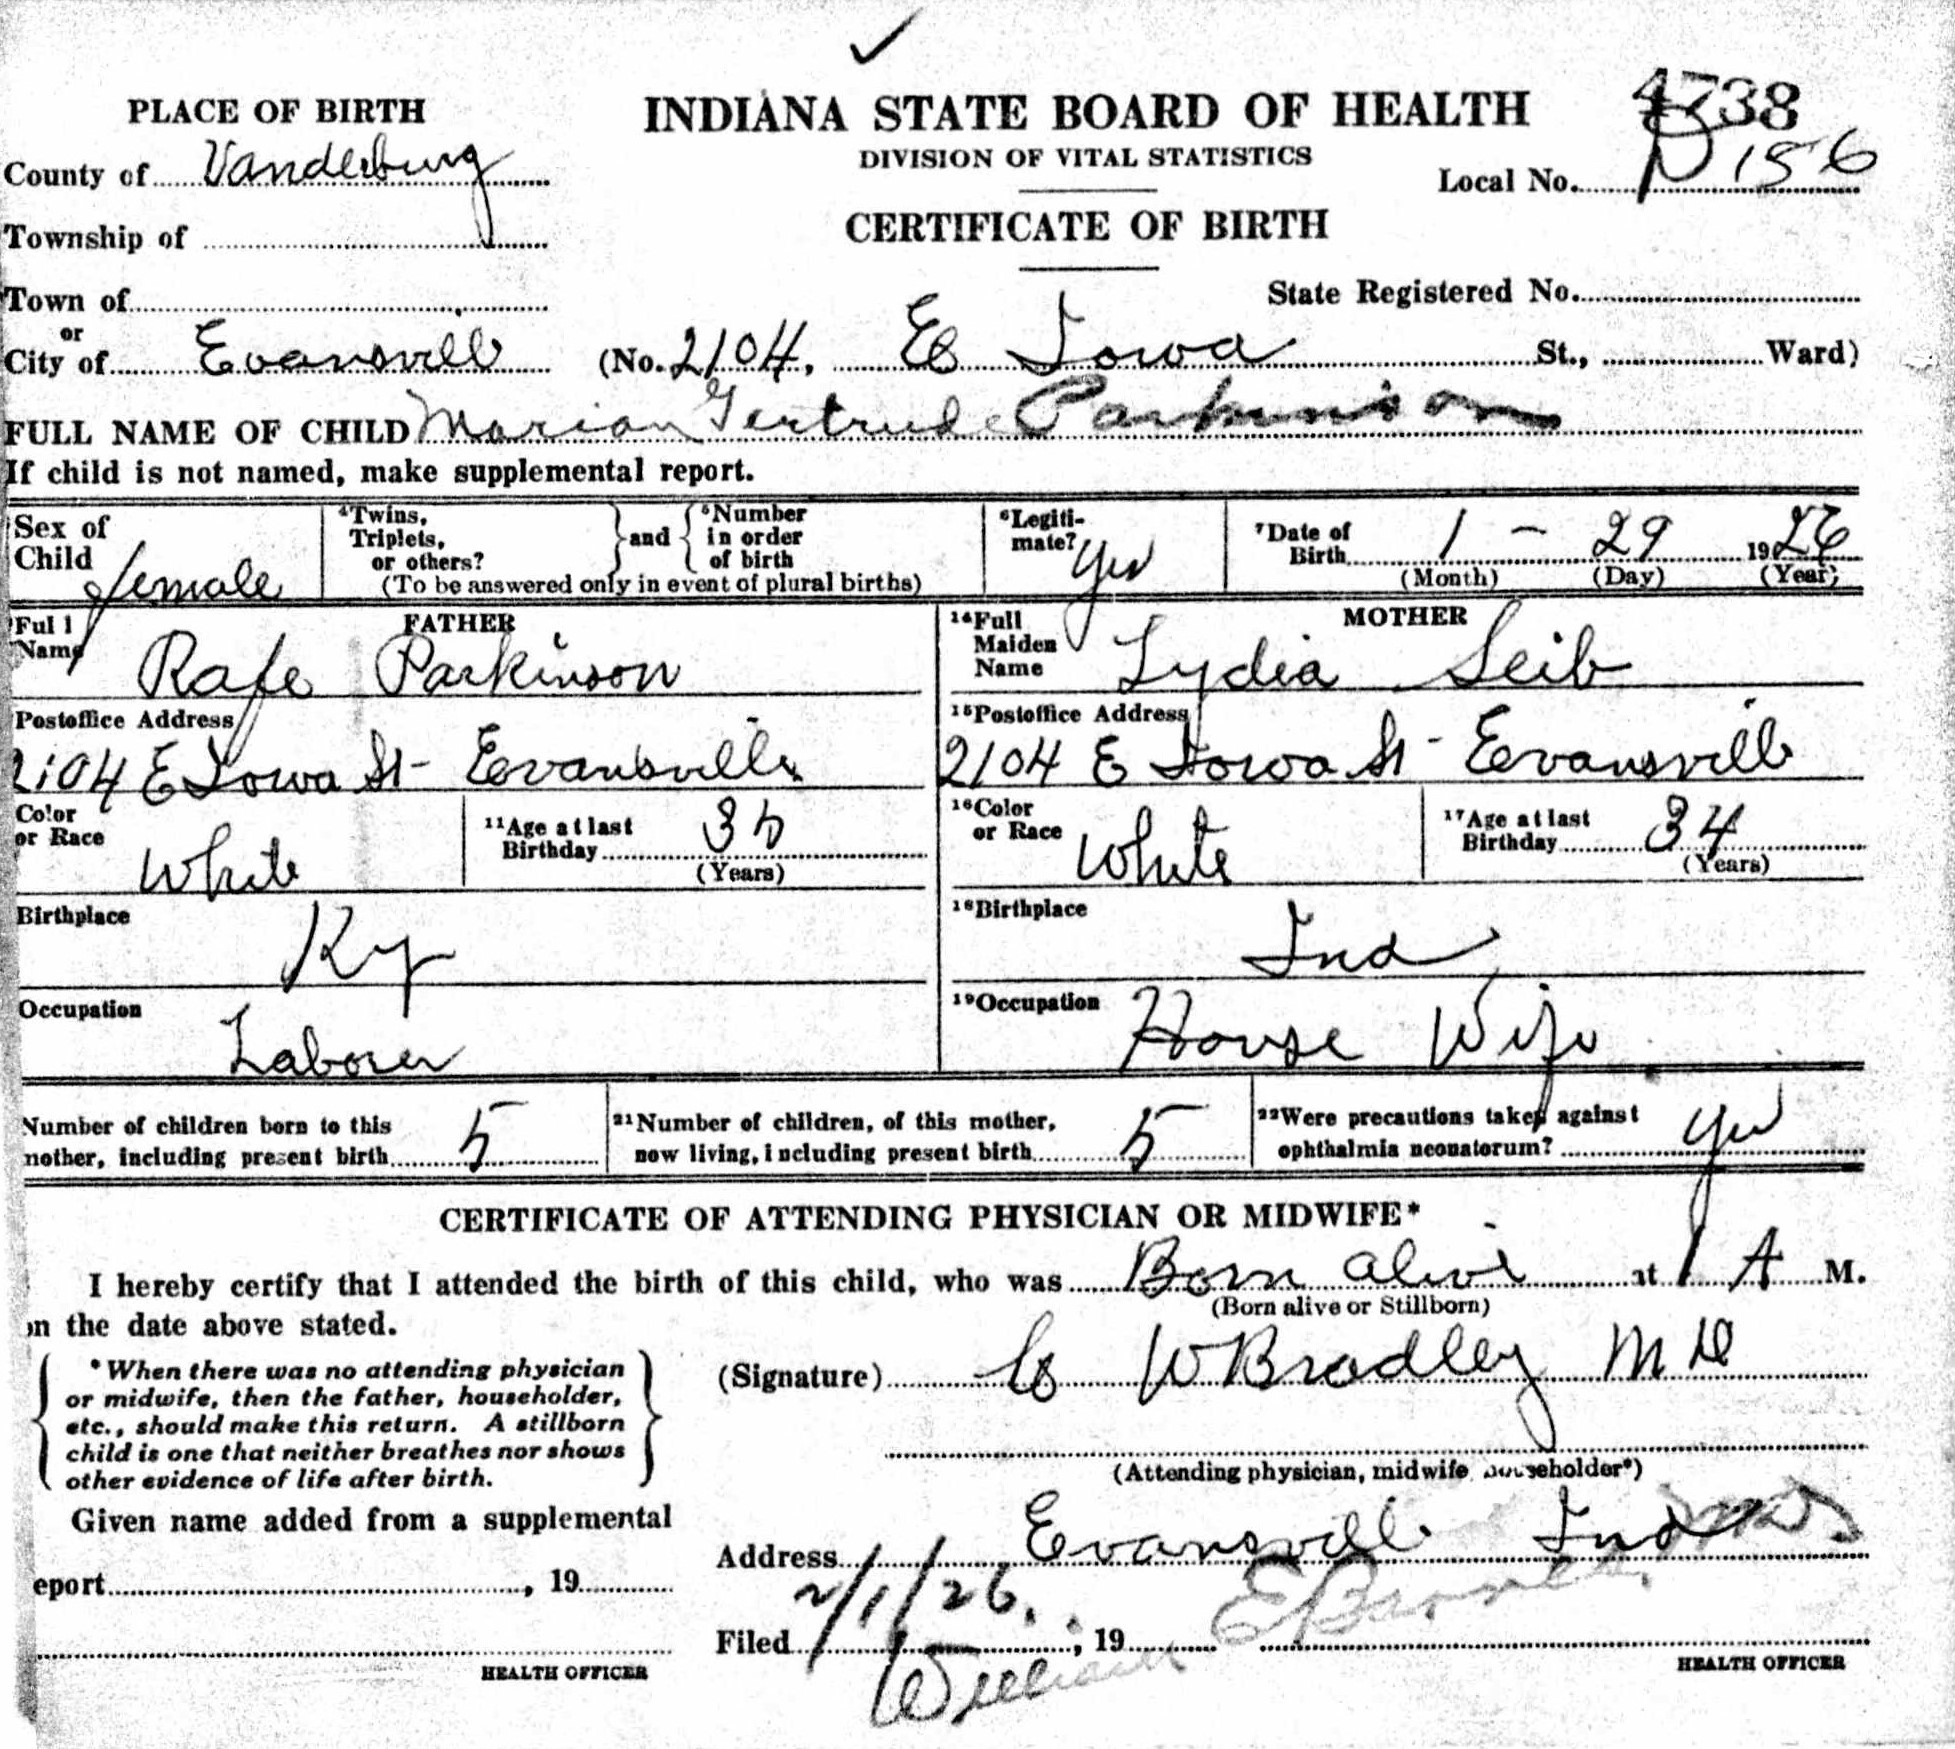 4738
PLACE OF BIRTH
INDIANA STATE BOARD OF HEALTH
DIVISION OF VITAL STATISTICS
County of Vanderburg
Local No. D 156
Township of
CERTIFICATE OF BIRTH
Town of
State Registered No.
or
City of Evansville (No. 2104, E Iowa St., Ward)
FULL NAME OF CHILD Marian Gertrude Parkinson
If child is not named, make supplemental report.
Sex of Child female
4Twins, Triplets, or others? and 5Number in order of birth
(To be answered only in event of plural births)
6Legitimate? Yes
7Date of Birth 1 - 29 1926
(Month) (Day) (Year)
FATHER
Full Name Rafe Parkinson
MOTHER
14Full Maiden Name Lydia Seib
Postoffice Address
2104 E Iowa St - Evansville
15Postoffice Address
2104 E Iowa St - Evansville
Color or Race White
11Age at last Birthday 35
(Years)
16Color or Race White
17Age at last Birthday 34
(Years)
Birthplace Ky
18Birthplace Ind
Occupation Laborer
19Occupation House Wife
Number of children born to this mother, including present birth 5
21Number of children, of this mother, now living, including present birth 5
22Were precautions taken against ophthalmia neonatorum? Yes
CERTIFICATE OF ATTENDING PHYSICIAN OR MIDWIFE*
I hereby certify that I attended the birth of this child, who was Born alive at 1 A M.
(Born alive or Stillborn)
on the date above stated.
*When there was no attending physician
or midwife, then the father, householder,
etc., should make this return. A stillborn
child is one that neither breathes nor shows
other evidence of life after birth.
(Signature) W Bradley MD
(Attending physician, midwife householder*)
Given name added from a supplemental
eport, 19
HEALTH OFFICER
Address Evansville Ind
Filed 2/1/26., 19
William E
HEALTH OFFICER